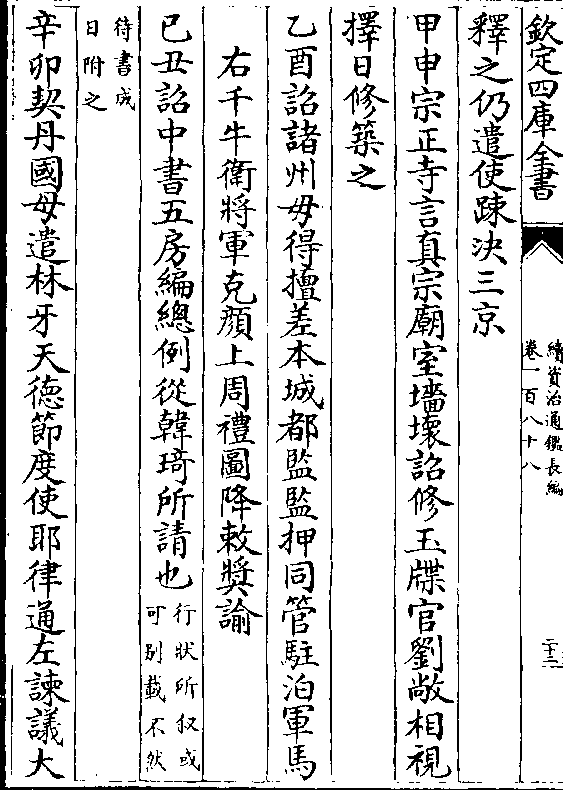 欽定四庫全書
續資治通鑑長編
卷一百八十八
二十三
釋之仍遣使踈決三京
甲申宗正寺言真宗廟室墻壞詔修玉牒官劉敞相視
擇日修築之
乙酉詔諸州毋得擅差本城都監監押同管駐泊軍馬
右千牛衛將軍克顔上周禮圖降敕獎諭
己丑詔中書五房編總例從韓琦所請也
行狀所叙或
可别載不然
待書成
日附之
辛卯契丹國母遣林牙天德節度使耶律通左諫議大